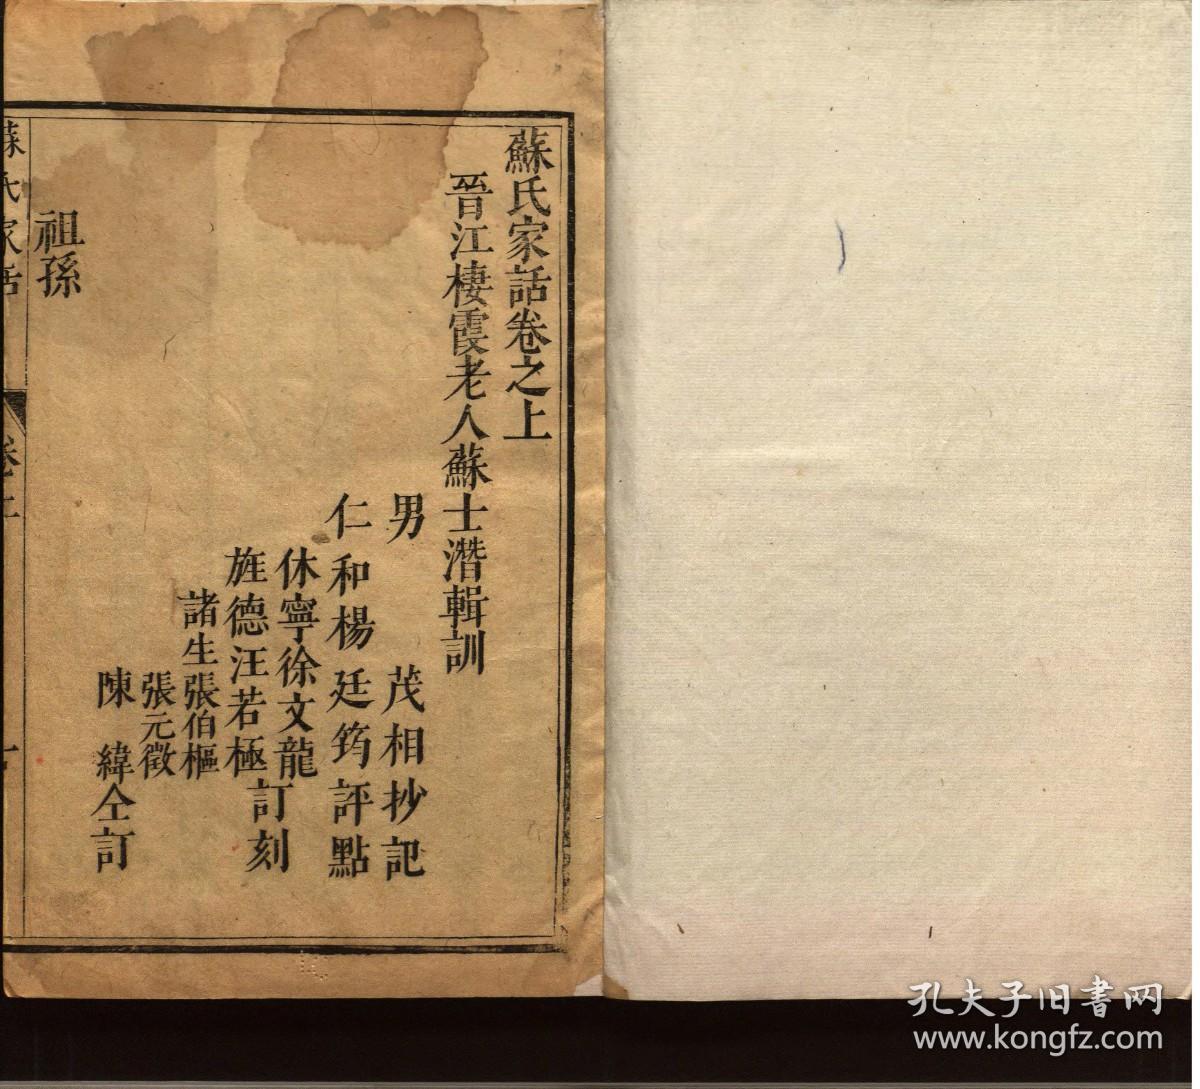 蘇氏家話卷之上
晉江棲霞老人蘇士潛輯訓
男 茂相抄記
仁和楊廷筠評點
休寧徐文龍
旌德汪若極
訂刻
諸生張伯樞
張元徵
陳緯仝訂
祖孫
蘇氏家話
卷上
孔夫子旧書网
www.kongfz.com